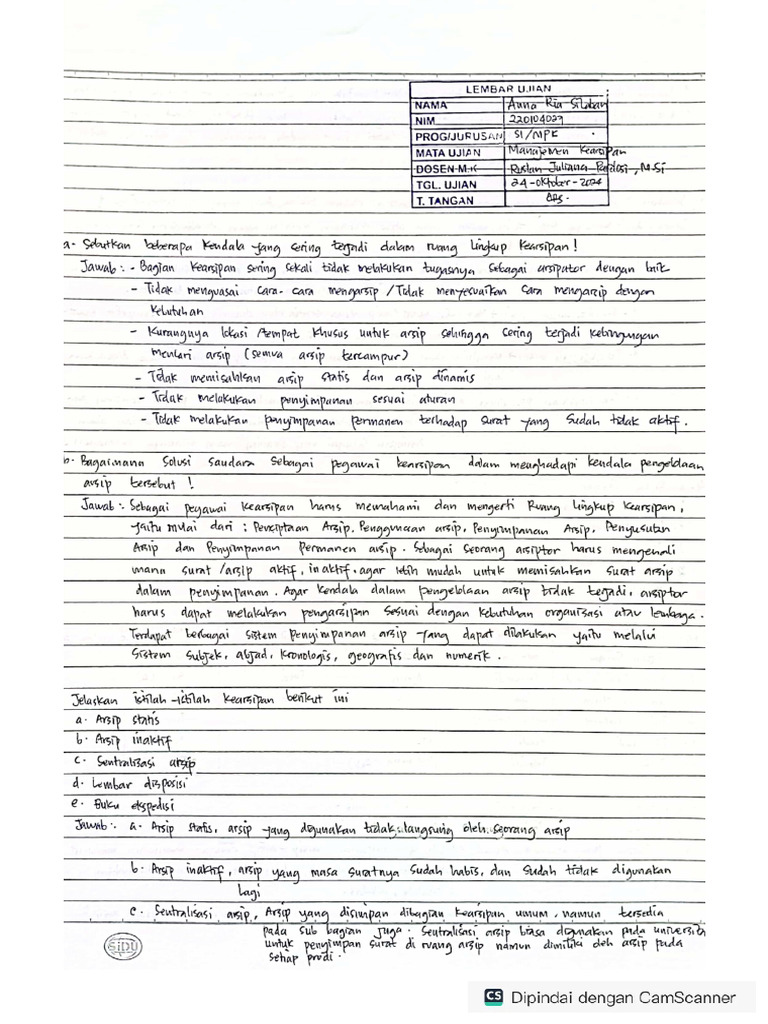 LEMBAR UJIAN
NAMA Anna Ria Silaban
NIM 220104027
PROG/JURUSAN S1/MPK
MATA UJIAN Manajemen Kearsipan
DOSEN M.K Ruslan Juliana , M.Si
TGL. UJIAN 24-Oktober-2024
T. TANGAN
a. Sebutkan beberapa kendala yang sering terjadi dalam ruang lingkup kearsipan!
Jawab : - Bagian kearsipan sering sekali tidak melakukan tugasnya sebagai arsipator dengan baik
- Tidak menguasai cara-cara mengarsip / Tidak menyesuaikan cara mengarsip dengan
kebutuhan
- Kurangnya lokasi /tempat khusus untuk arsip sehingga sering terjadi kebingungan
mencari arsip (semua arsip tercampur)
- Tidak memisahkan arsip statis dan arsip dinamis
- Tidak melakukan penyimpanan sesuai aturan
- Tidak melakukan penyimpanan permanen terhadap surat yang sudah tidak aktif.
b. Bagaimana solusi saudara sebagai pegawai kearsipan dalam menghadapi kendala pengelolaan
arsip tersebut !
Jawab : Sebagai pegawai kearsipan harus memahami dan mengerti Ruang lingkup kearsipan,
yaitu mulai dari : Penciptaan Arsip, Penggunaan arsip, Penyimpanan Arsip, Penyusutan
Arsip dan Penyimpanan Permanen arsip. Sebagai seorang arsiptor harus mengenali
mana surat /arsip aktif, inaktif, agar lebih mudah untuk memisahkan surat arsip
dalam penyimpanan. Agar kendala dalam pengelolaan arsip tidak terjadi, arsiptor
harus dapat melakukan pengarsipan sesuai dengan kebutuhan organisasi atau lembaga.
Terdapat berbagai sistem penyimpanan arsip yang dapat dilakukan yaitu melalui
Sistem subjek, abjad, kronologis, geografis dan numerik.
Jelaskan istilah-istilah kearsipan berikut ini
a. Arsip statis
b. Arsip inaktif
c. Sentralisasi arsip
d. Lembar disposisi
e. Buku ekspedisi
Jawab : a. Arsip statis, arsip yang digunakan tidak langsung oleh seorang arsip
b. Arsip inaktif, arsip yang masa suratnya sudah habis, dan sudah tidak digunakan
lagi
c. Sentralisasi arsip, Arsip yang disimpan dibagian kearsipan umum, namun tersedia
pada sub bagian juga. Sentralisasi arsip biasa digunakan pada universitas
untuk penyimpan surat di ruang arsip namun dimiliki oleh arsip pada
setiap prodi.
SIDU
CS Dipindai dengan CamScanner